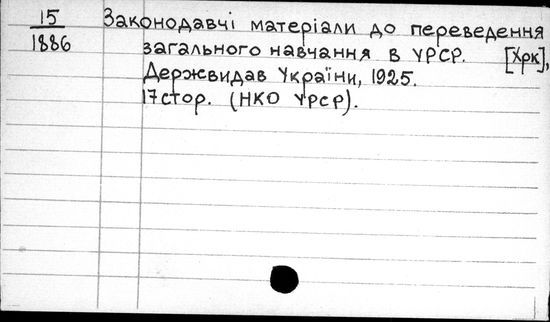 15
1886
Законодавчі матеріали до переведення
загального навчання в УРСР. [Хрк],
Держвидав України, 1925.
17стор. (НКО УРСР).